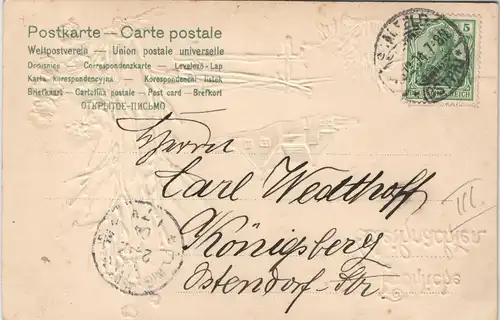 Postkarte — Carte postale
Weltpostverein — Union postale universelle
Dopisnice — Correspondenzkarte — Levelező-Lap
Karta korespondencyjna — Korespondenční listek
Briefkaart — Cartolina postale — Post card — Brefkort
ОТКРЫТОЕ-ПИСЬМО
5
REICH
Herrn
Carl Wedthoff
III
Königsberg
Ostendorf-Str.